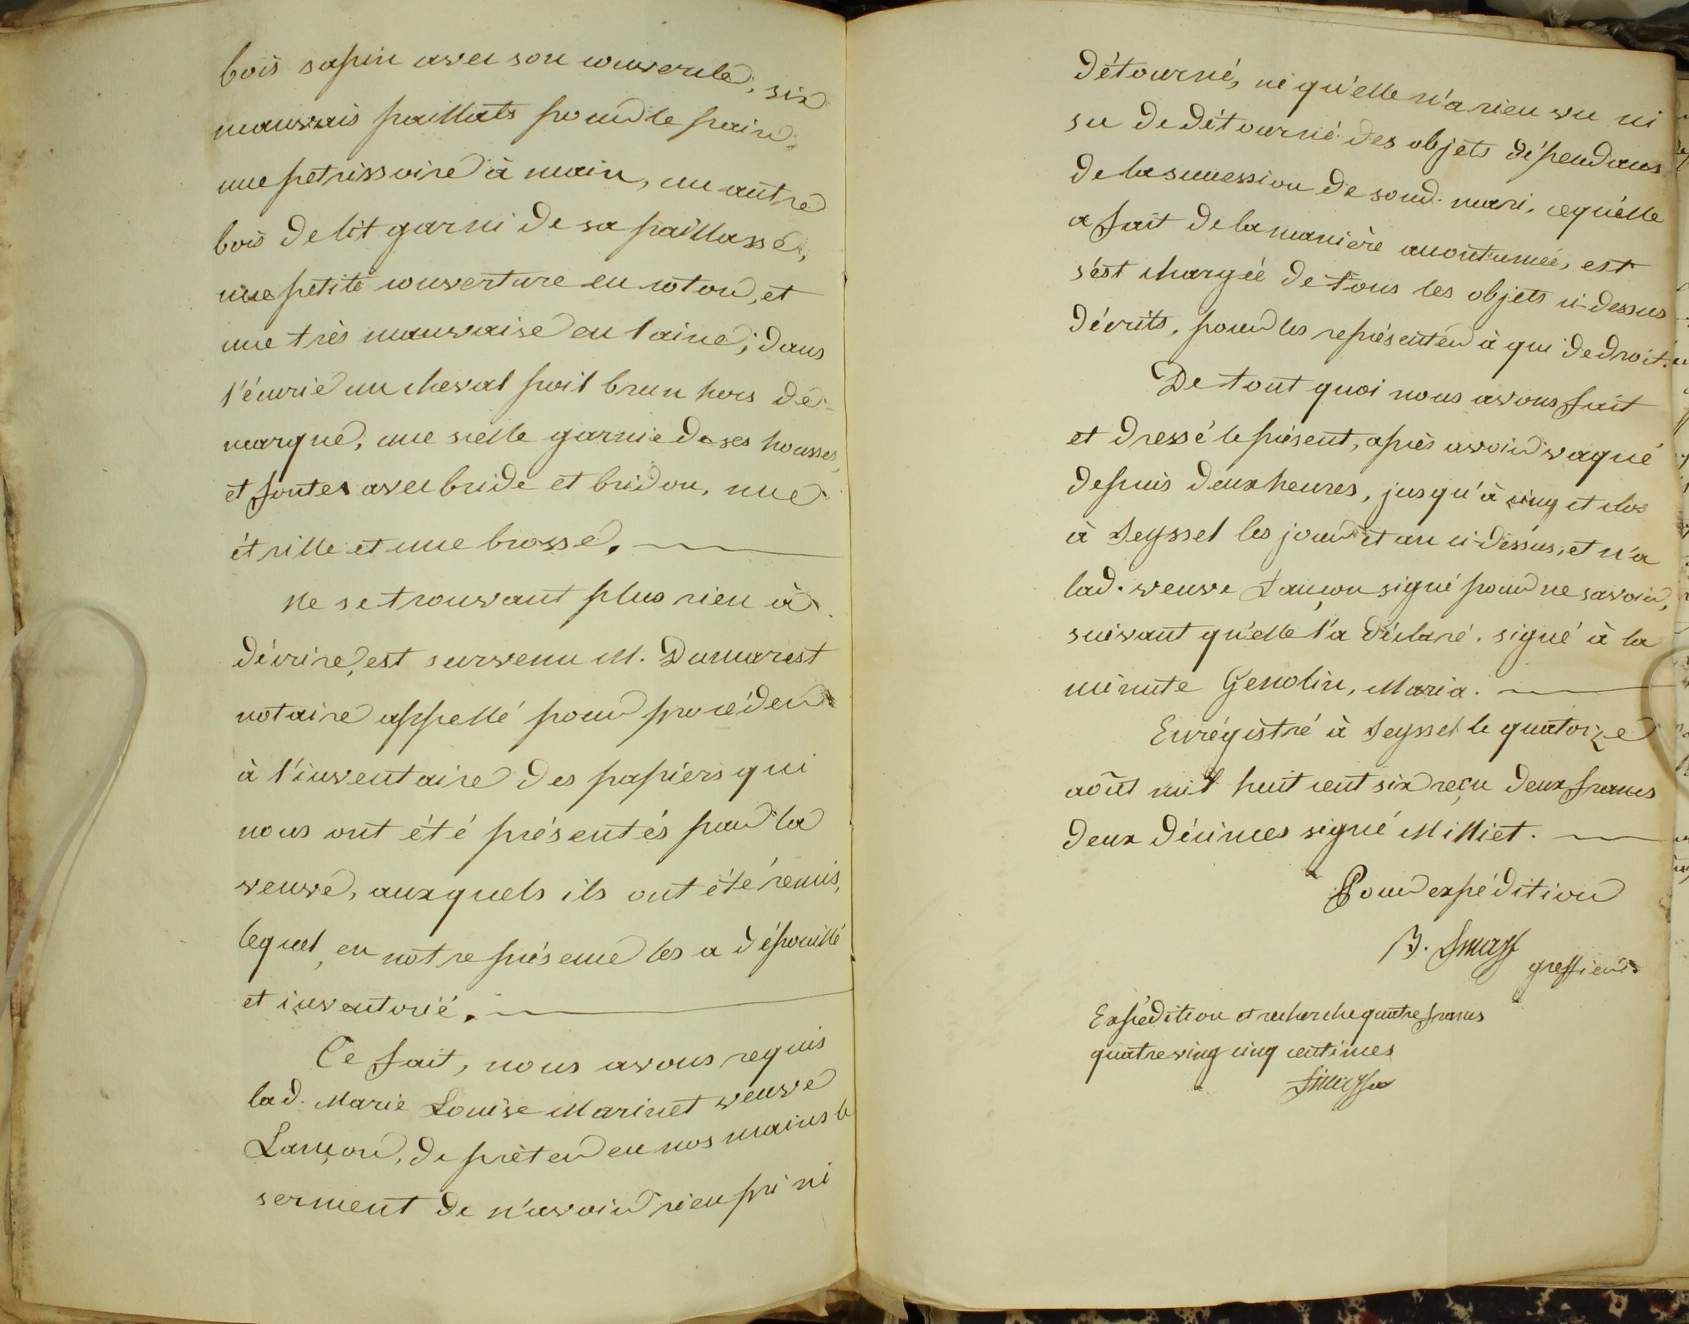 bois sapin avec son couvercle, six
mauvais paillats pour le pain,
une petrissoire à main, un autre
bois de lit garni de sa paillasse,
une petite couverture en coton, et
une très mauvaise en laine; dans
l'écurie un cheval poil brun hors de
marque, une selle garnie de ses housses,
et fontes avec bride et bridon, une
étrille et une brosse.
Ne se trouvant plus rien à
décrire, est survenu M. Dumarest
notaire appellé pour procéder
à l'inventaire des papiers qui
nous ont été présentés par la
veuve, auxquels ils ont été remis,
lequel, en notre présence les a dépouillé
et inventorié.
Ce fait, nous avons requis
lad. Marie Louise Marinet veuve
Lançon, de prêter en nos mains le
serment de n'avoir rien pri ni
détourné, ni qu'elle n'a rien vu ni
su de détourné des objets dépendans
de la succession de sond. mari, ce qu'elle
a fait de la manière accoutumée, est
s'est chargée de tous les objets ci-dessus
décrits, pour les représenter à qui de droit.
De tout quoi nous avons fait
et dressé le présent, après avoir vaqué
depuis deux heures, jusqu'à cinq et clos
à Seyssel les jour et an ci-dessus, et n'a
lad. veuve Lançon signé pour ne savoir,
suivant qu'elle l'a déclaré. signé à la
minute Genolin, Maria.
Enrégistré à Seyssel le quatorze
août mil huit cent six reçu deux francs
deux décimes signé Milliet.
Pour expédition
greffier
Expédition et recherche quatre francs
quatre ving cinq centimes